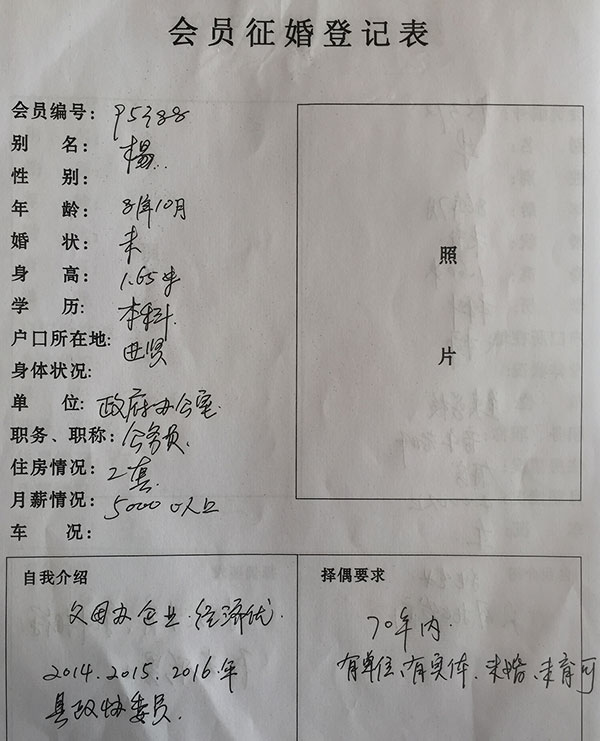 会员征婚登记表
会员编号: P5388
别 名: 杨
性 别:
年 龄: 81年10月
婚 状: 未
身 高: 1.65米
学 历: 本科
户口所在地: 进贤
身体状况:
单 位: 政府办公室
职务、职称: 公务员
住房情况: 2套
月薪情况: 5000以上
车 况:
照
片
自我介绍
父母办企业.经济优.
2014.2015.2016.年
县政协委员.
择偶要求
70年内.
有单位、有实体、未婚、未育可